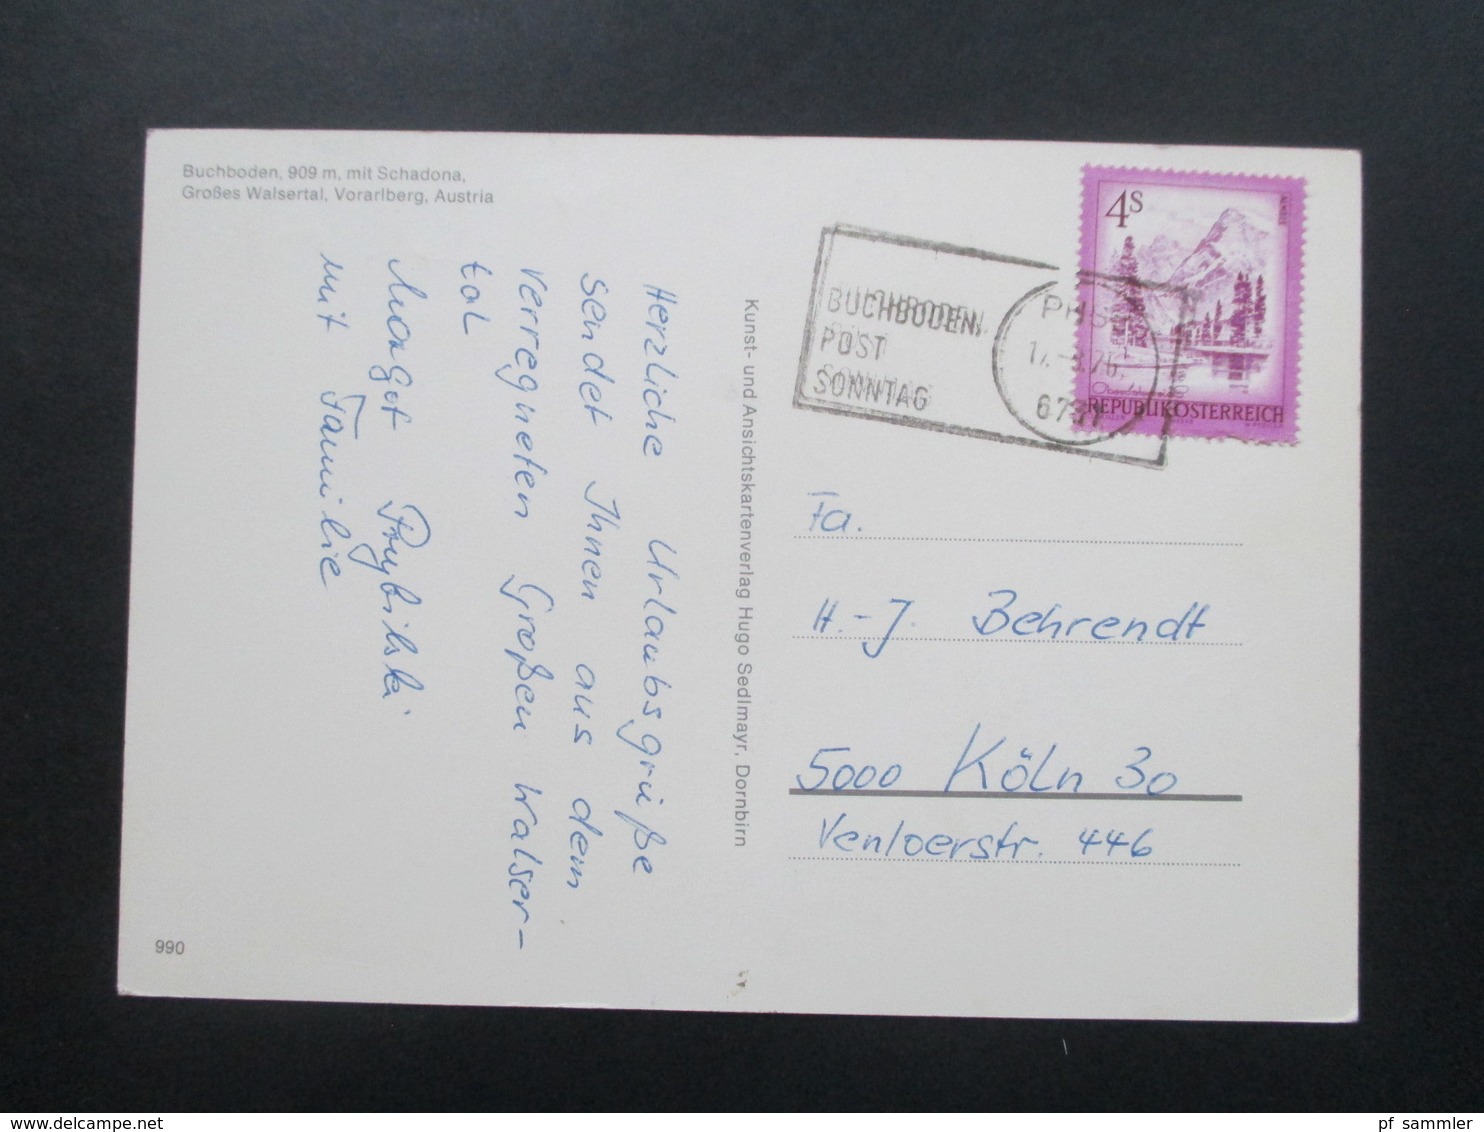 Buchboden, 909 m, mit Schadona,
Großes Walsertal, Vorarlberg, Austria
Herzliche Urlaubsgrüße
sendet Ihnen aus dem
verregneten Großen Walser-
tal
Margot
mit Familie
990
Kunst- und Ansichtskartenverlag Hugo Sedlmayr, Dornbirn
BUCHBODEN,
POST
SONNTAG
4S
ALMSEE
REPUBLIK ÖSTERREICH
Fa.
H.-J. Behrendt
5000 Köln 30
Venloerstr. 446
www.delcampe.net
pf_sammler